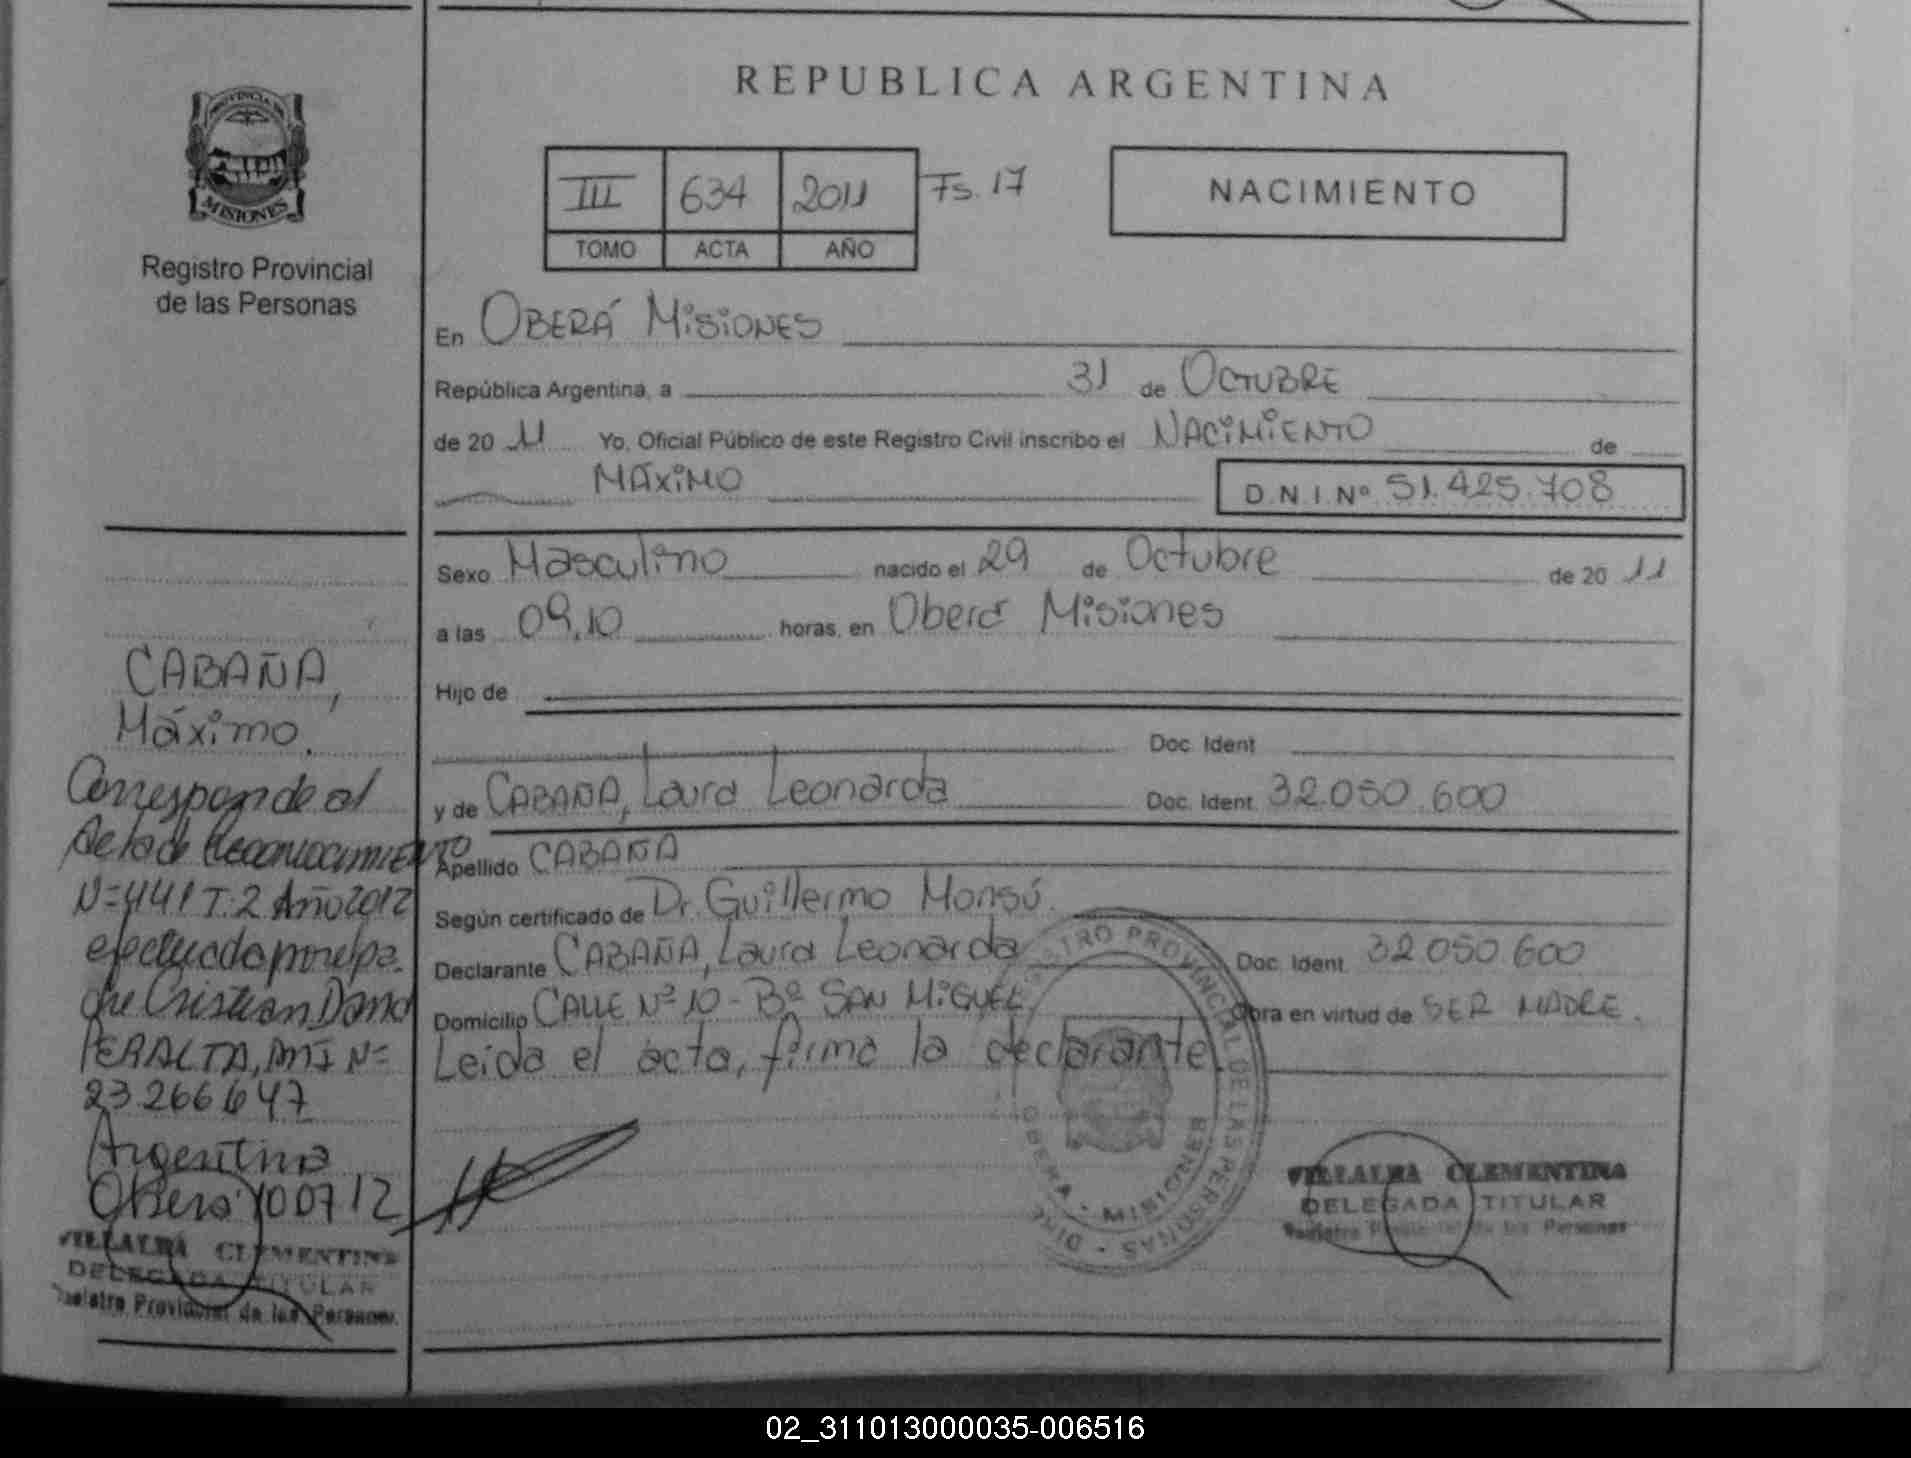 REPUBLICA ARGENTINA
PROVINCIA DE
MISIONES
Registro Provincial
de las Personas
III 634 2011 Fs. 17
TOMO ACTA AÑO
NACIMIENTO
En OBERÁ MISIONES
República Argentina, a 31 de OCTUBRE
de 20 11 Yo, Oficial Público de este Registro Civil inscribo el NACIMIENTO de
MÁXIMO D.N.I. Nº 51.425.708
Sexo Masculino nacido el 29 de Octubre de 20 11
a las 09,10 horas, en Oberá Misiones
Hijo de
Doc. Ident
y de CABAÑA, Laura Leonarda Doc. Ident. 32.050.600
Apellido CABAÑA
Según certificado de Dr. Guillermo Monsú.
Declarante CABAÑA, Laura Leonarda Doc. Ident. 32.050.600
Domicilio CALLE Nº 10 - Bº SAN MIGUEL Obra en virtud de SER MADRE.
Leída el acta, firma la declarante.
CABAÑA,
Máximo.
Corresponde al
Acta de Reconocimiento
N=441 T.2 Año 2012
efectuada por el pa
dre Cristian
PERALTA, DNI N=
23.266.647
Argentino
Oberá 100712
VILLALBA CLEMENTINA
DELEGADA TITULAR
Registro Provincial de las Personas
REGISTRO PROVINCIAL DE LAS PERSONAS
OBERA - MISIONES
VILLALBA CLEMENTINA
DELEGADA TITULAR
Registro Provincial de las Personas
02_311013000035-006516